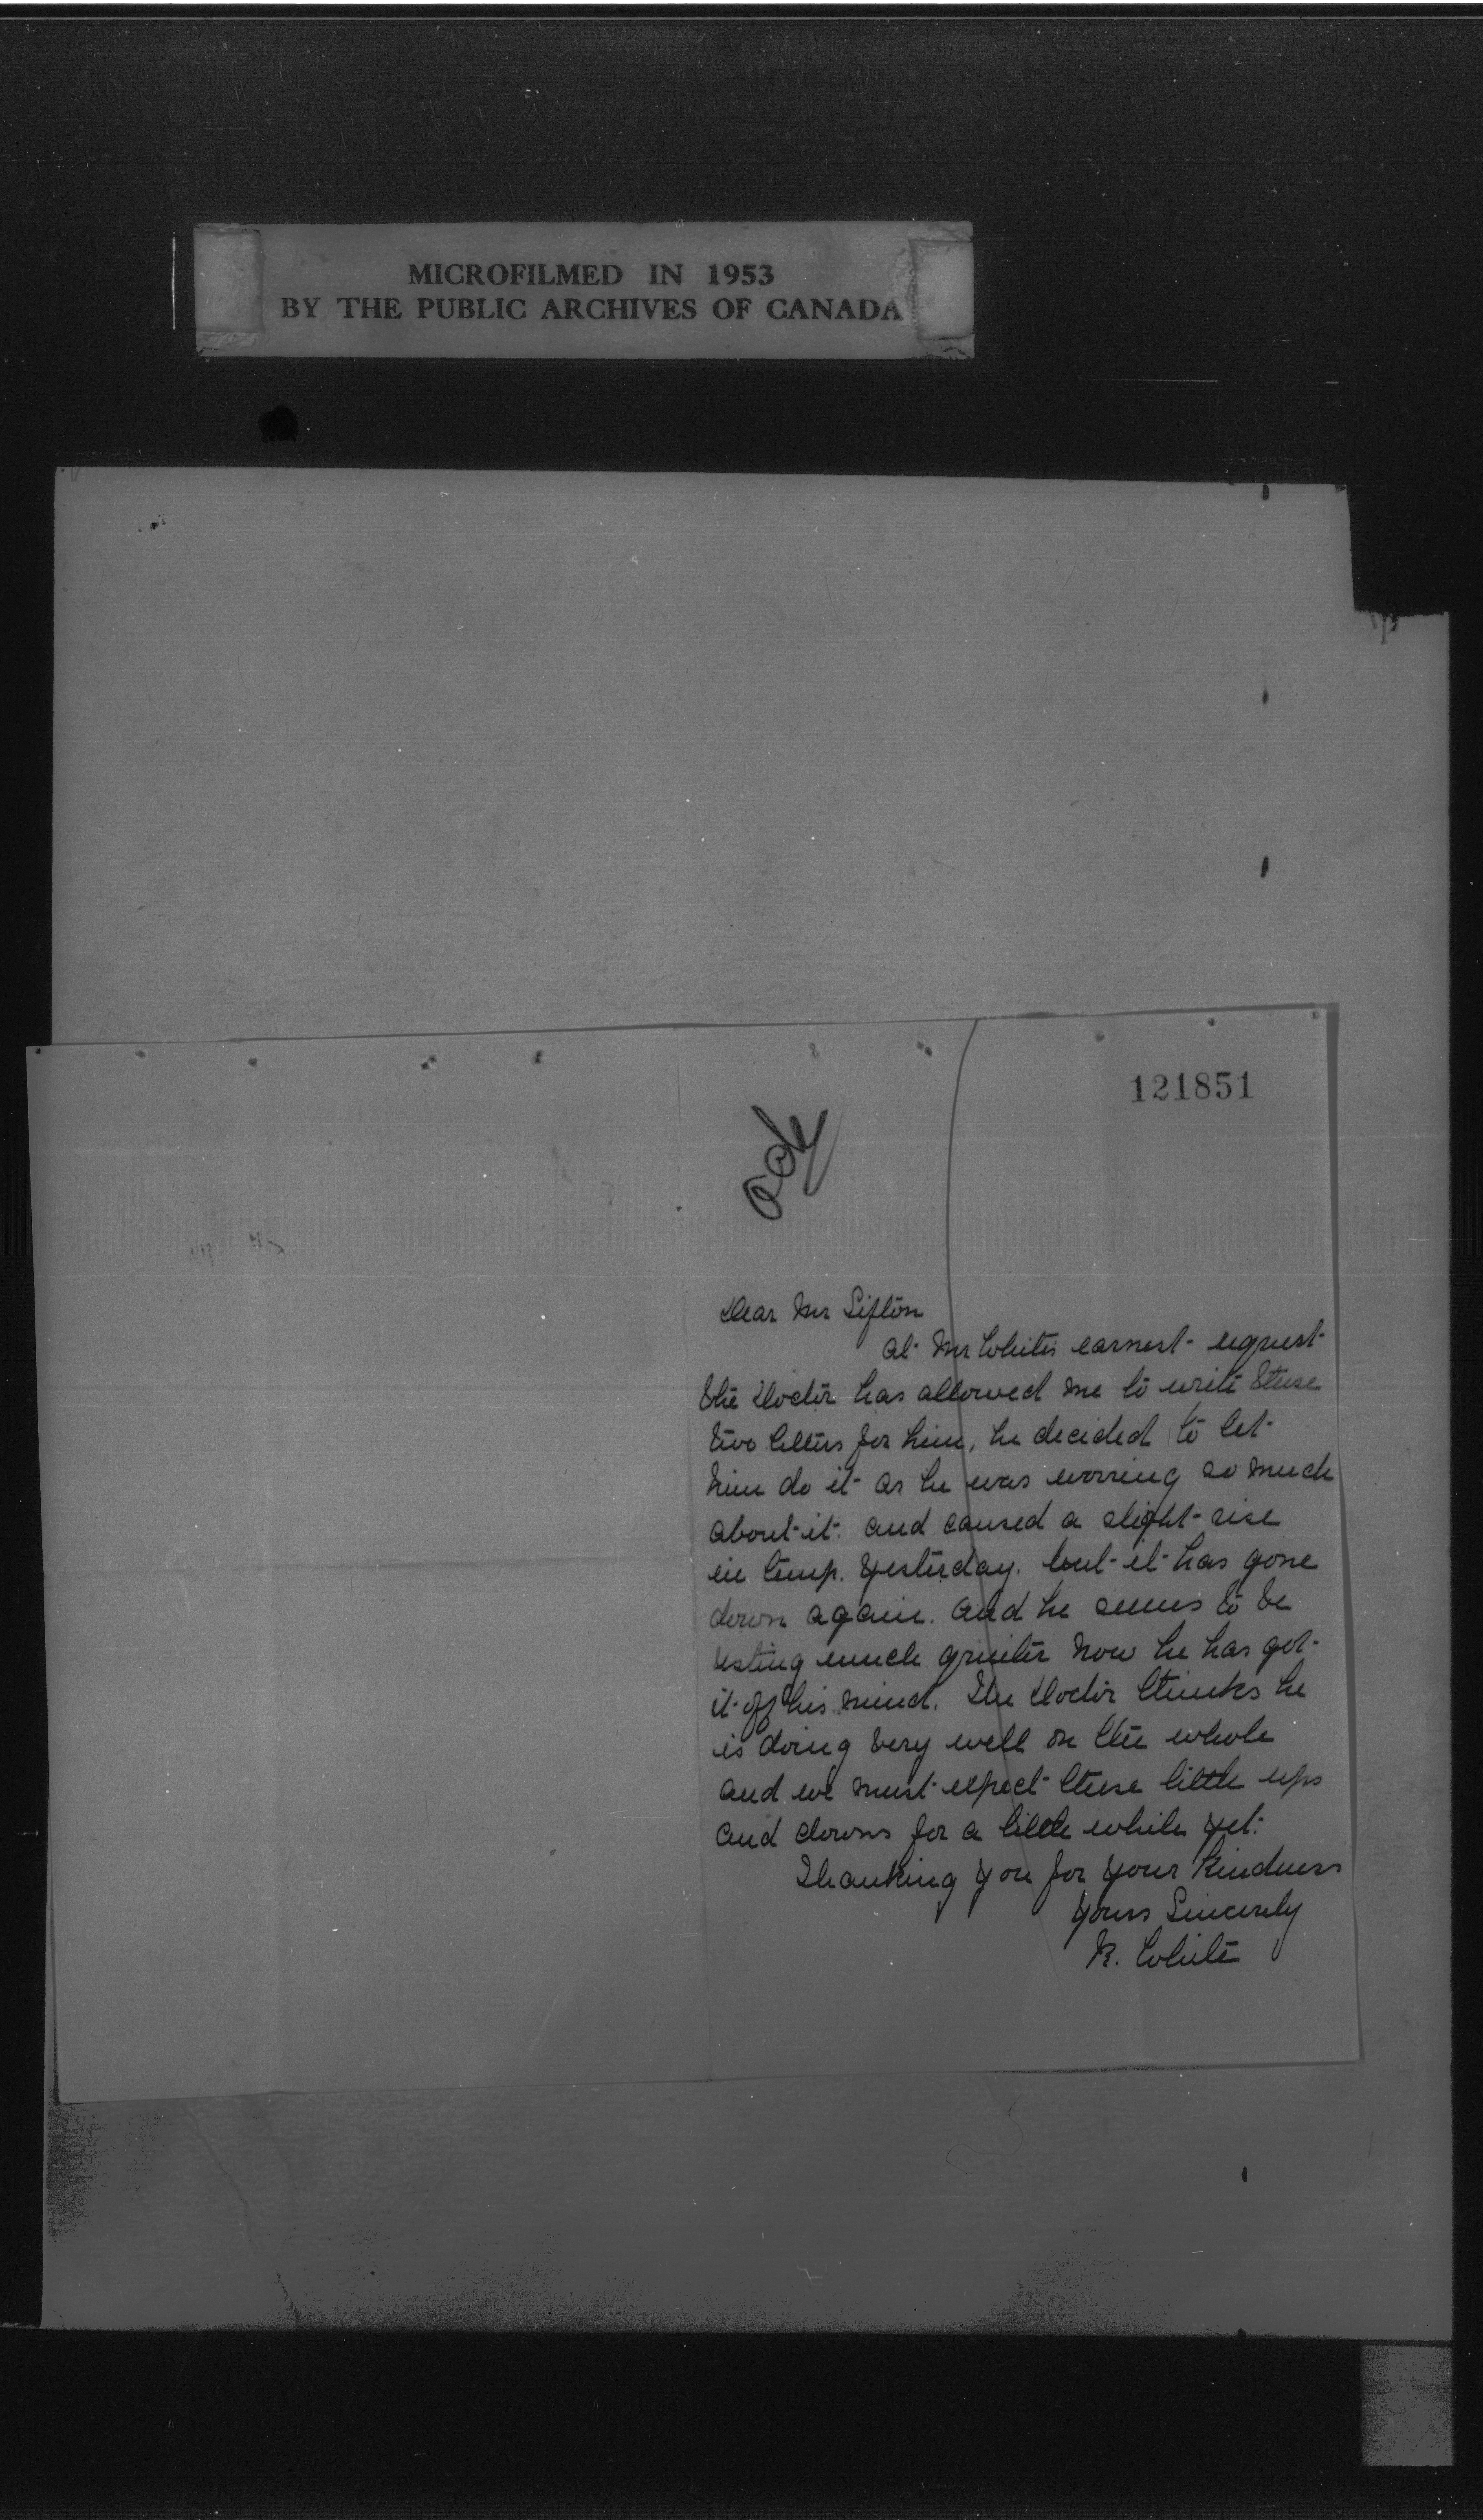 MICROFILMED IN 1953
BY THE PUBLIC ARCHIVES OF CANADA
121851
ack
Dear Mr Sifton
At Mr Whites earnest request
the Doctor has allowed me to write these
two letters for him, he decided to let
him do it as he was worring so much
about it. and caused a slight rise
in temp. yesterday. but it has gone
down again. and he seems to be
resting much quieter now he has got
it off his mind. The Doctor thinks he
is doing very well on the whole
and we must expect these little ups
and downs for a little while yet.
Thanking you for your kindness
Yours Sincerely
White